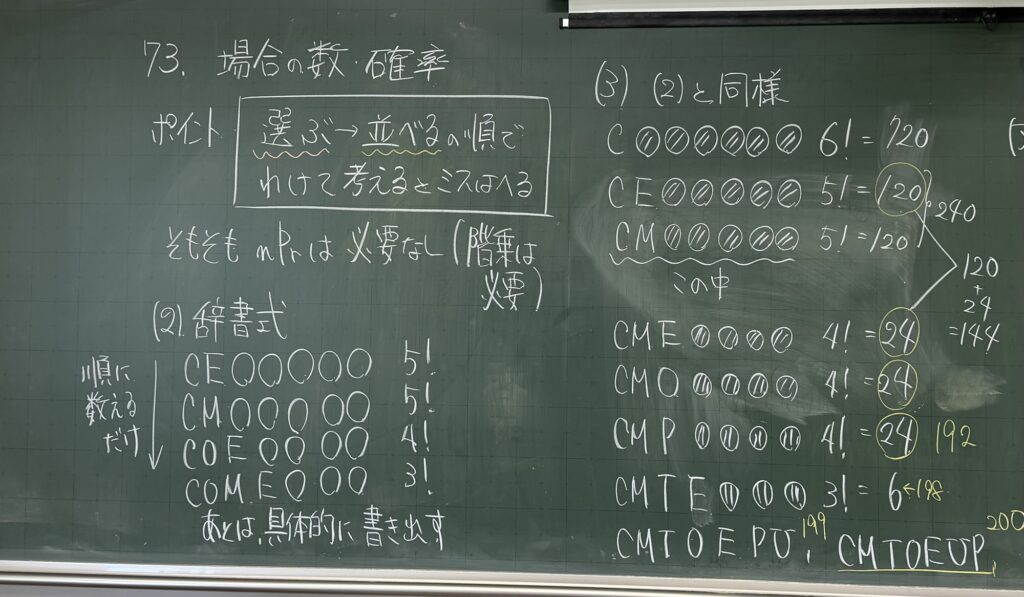 73. 場合の数・確率
ポイント 選ぶ→並べるの順で
わけて考えるとミスはへる
そもそも nPrは 必要なし(階乗は
必要)
(2). 辞書式
順に
数える
だけ
CE○○○○○ 5!
CM○○○○○ 5!
COE○○○○ 4!
COM.E○○○ 3!
あとは,具体的に書き出す
(3) (2)と同様
C○○○○○○ 6! = 720
CE○○○○○ 5! = 120
CM○○○○○ 5! = 120
240
この中
120
+
24
=144
CME○○○○ 4! = 24
CMO○○○○ 4! = 24
CMP○○○○ 4! = 24 192
CMTE○○○ 3! = 6 ←198
CMTOEPU, 199 CMTOEUP, 200